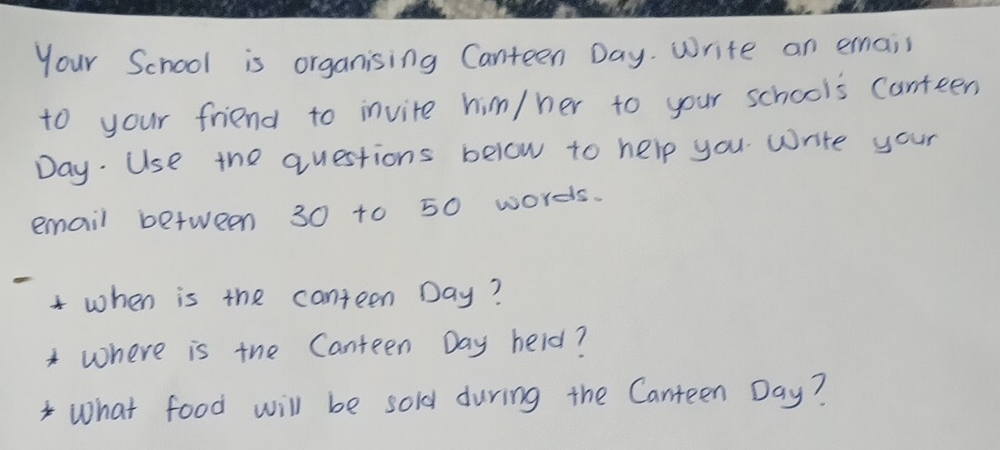 Your School is organising Canteen Day. Write an email
to your friend to invite him/her to your school's Canteen
Day. Use the questions below to help you. Write your
email between 30 to 50 words.
* when is the canteen Day?
* where is the Canteen Day held?
* What food will be sold during the Canteen Day?